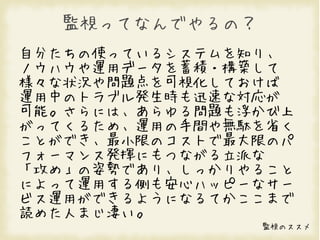 監視ってなんでやるの？
自分たちの使っているシステムを知り、
ノウハウや運用データを蓄積・構築して
様々な状況や問題点を可視化しておけば
運用中のトラブル発生時も迅速な対応が
可能。さらには、あらゆる問題も浮かび上
がってくるため、運用の手間や無駄を省く
ことができ、最小限のコストで最大限のパ
フォーマンス発揮にもつながる立派な
「攻め」の姿勢であり、しっかりやること
によって運用する側も安心ハッピーなサー
ビス運用ができるようになるてかここまで
読めた人まじ凄い。
監視のススメ